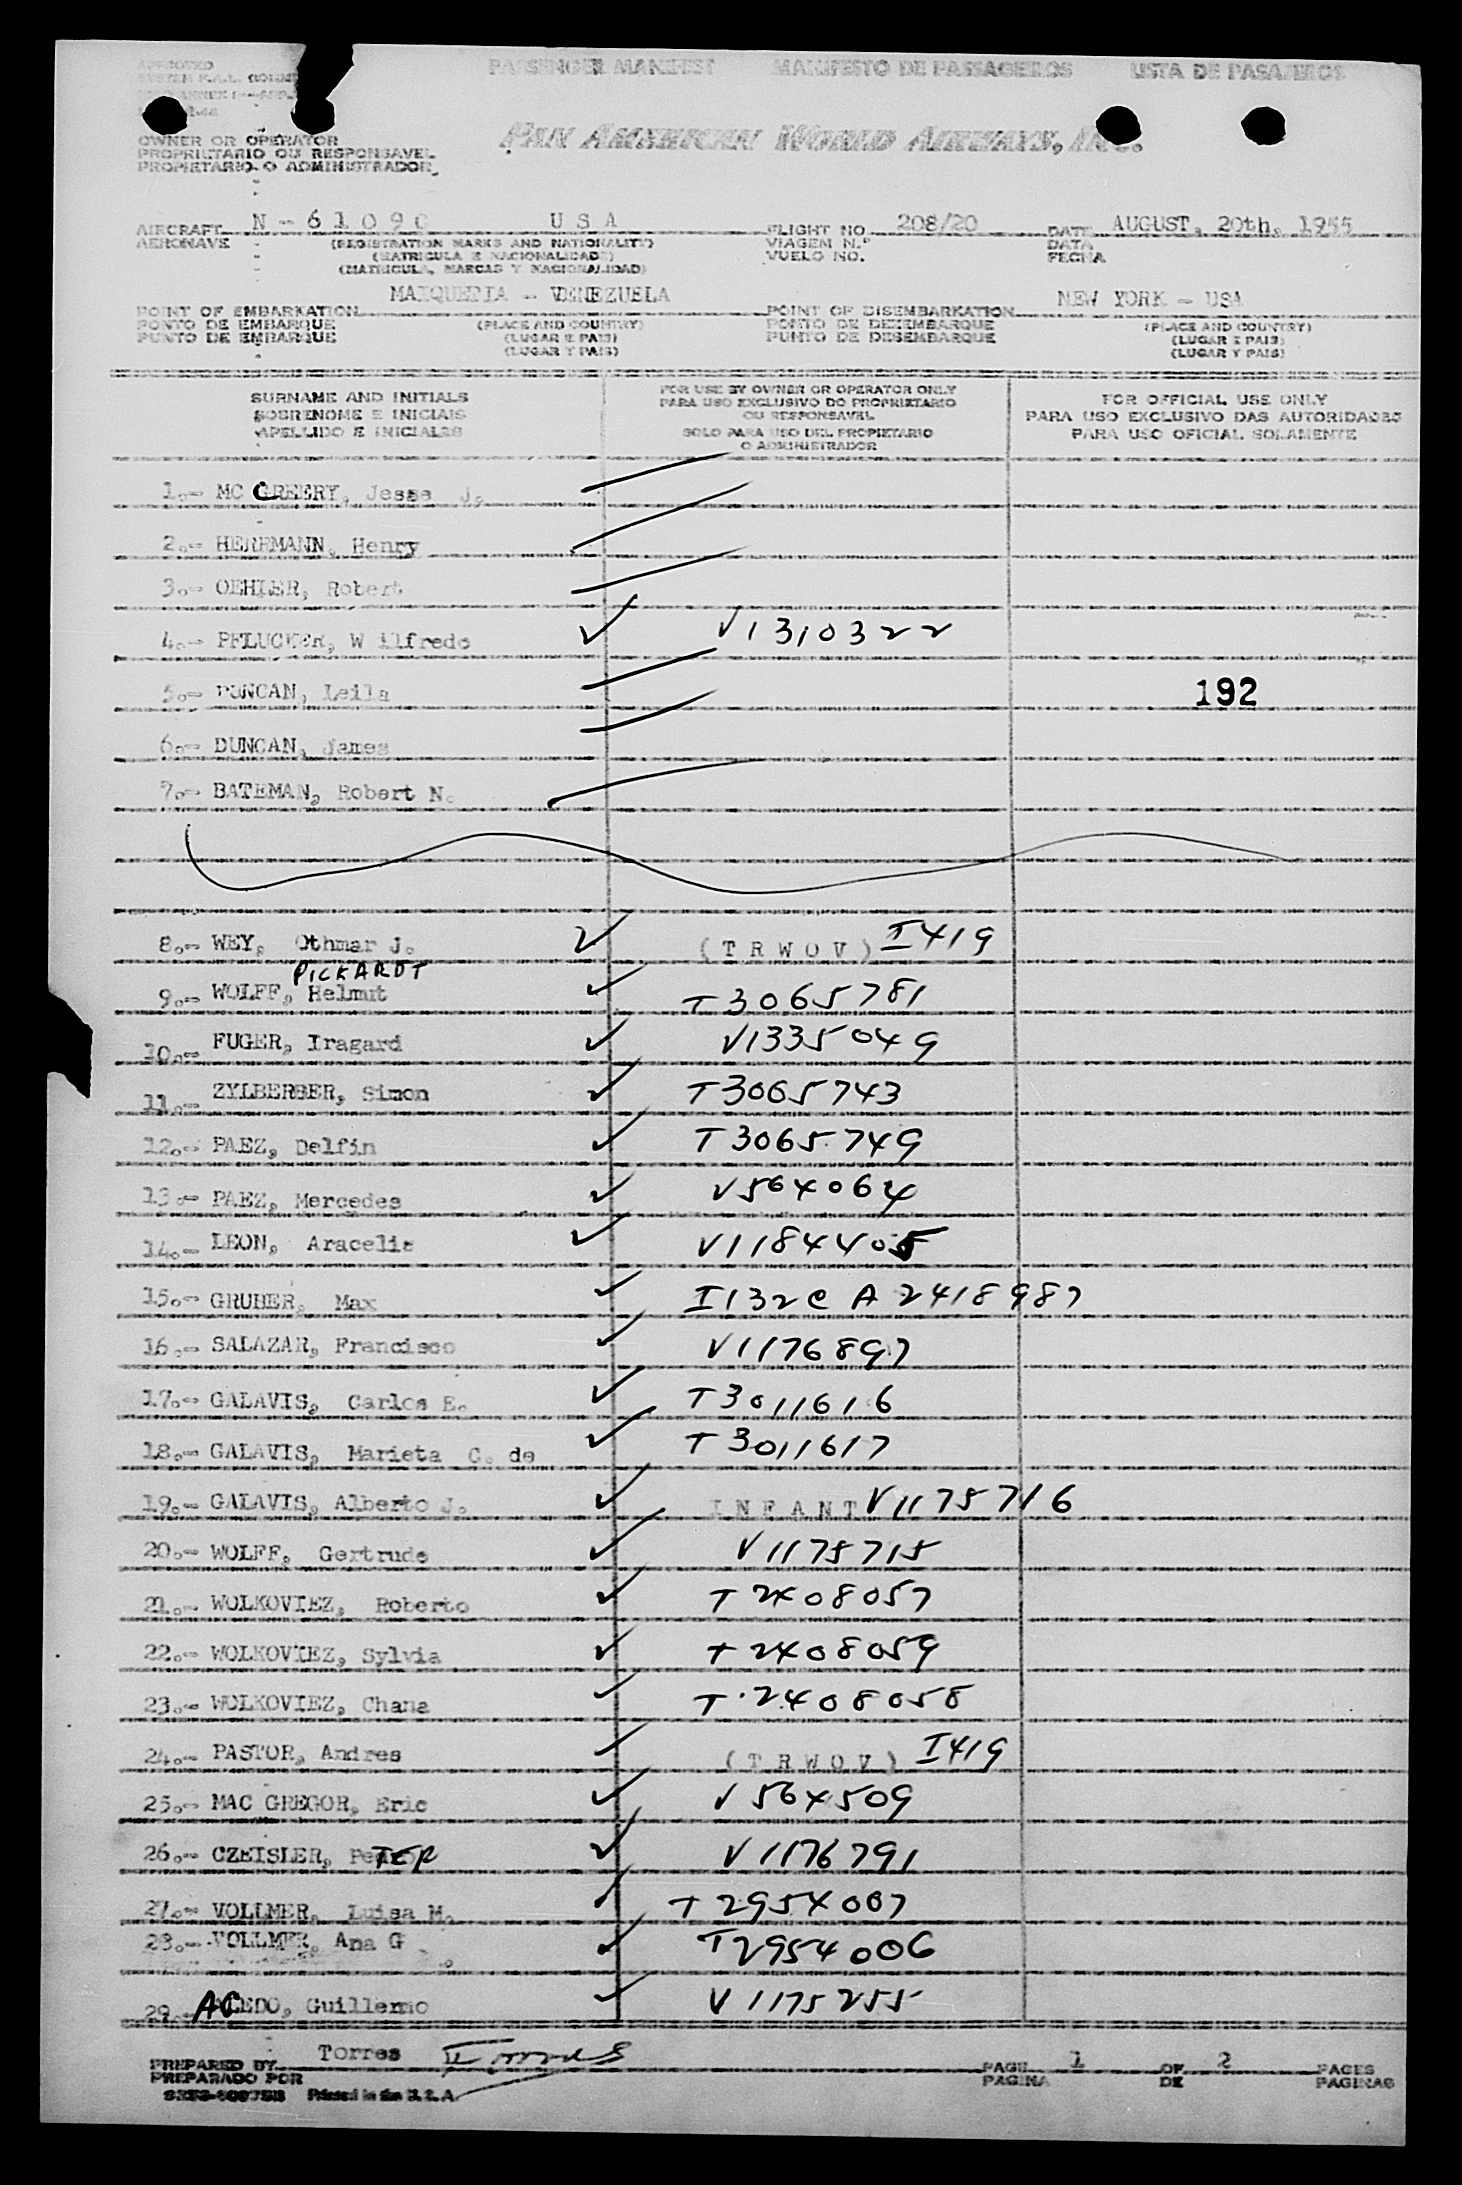 APPROVED
PASSENGER MANIFEST MANIFESTO DE PASSAGEIROS LISTA DE PASAJEROS
OWNER OR OPERATOR
PROPRIETARIO OU RESPONSAVEL
PROPIETARIO O ADMINISTRADOR
PAN AMERICAN WORLD AIRWAYS, INC.
AIRCRAFT N - 6 1 0 9 0 U S A FLIGHT NO 208/20 DATE AUGUST, 20th, 1955
AERONAVE (REGISTRATION MARKS AND NATIONALITY) VIAGEM N.º DATA
(MATRICULA E NACIONALIDADE) VUELO NO. FECHA
(MATRICULA, MARCAS Y NACIONALIDAD)
MAIQUETIA - VENEZUELA NEW YORK - USA
POINT OF EMBARKATION POINT OF DISEMBARKATION
PONTO DE EMBARQUE (PLACE AND COUNTRY) PONTO DE DEZEMBARQUE (PLACE AND COUNTRY)
PUNTO DE EMBARQUE (LUGAR E PAIS) PUNTO DE DESEMBARQUE (LUGAR E PAIS)
(LUGAR Y PAIS) (LUGAR Y PAIS)
SURNAME AND INITIALS FOR USE BY OWNER OR OPERATOR ONLY FOR OFFICIAL USE ONLY
SOBRENOME E INICIAIS PARA USO EXCLUSIVO DO PROPRIETARIO PARA USO EXCLUSIVO DAS AUTORIDADES
OU RESPONSAVEL
APELLIDO E INICIALES SOLO PARA USO DEL PROPIETARIO PARA USO OFICIAL SOLAMENTE
O ADMINISTRADOR
1.- MC GREERY, Jesse J.
2.- HERRMANN, Henry
3.- OEHLER, Robert
4.- PFLUCKER, W ilfredo ✓ V1310322
5.- DUNCAN, Leila 192
6.- DUNCAN, James
7.- BATEMAN, Robert N.
8.- WEY, Othmar J. ✓ (T R W O V) I419
PICKARDT
9.- WOLFF, Helmut ✓ T3065781
10.- FUGER, Iragard ✓ V1335049
11.- ZYLBERBER, Simon ✓ T3065743
12.- PAEZ, Delfin ✓ T3065749
13.- PAEZ, Mercedes ✓ V564064
14.- LEON, Aracelis ✓ V1184405
15.- GRUBER, Max ✓ I132C A2418987
16.- SALAZAR, Francisco ✓ V1176897
17.- GALAVIS, Carlos E. ✓ T3011616
18.- GALAVIS, Marieta C. de ✓ T3011617
19.- GALAVIS, Alberto J. ✓ I N F A N T V1175716
20.- WOLFF, Gertrude ✓ V1175715
21.- WOLKOVIEZ, Roberto ✓ T2408057
22.- WOLKOVIEZ, Sylvia ✓ T2408059
23.- WOLKOVIEZ, Chana ✓ T2408058
24.- PASTOR, Andres ✓ (T R W O V) I419
25.- MAC GREGOR, Eric ✓ V564509
26.- CZEISLER, PeTER ✓ V1176791
27.- VOLLMER, Luisa M. ✓ T2954007
28.- VOLLMER, Ana G. ✓ T2954006
29.- ACEDO, Guillermo ✓ V1175255
PREPARED BY Torres Torres PAGE 1 OF 2 PAGES
PREPARADO POR PAGINA DE PAGINAS
Printed in the U.S.A.